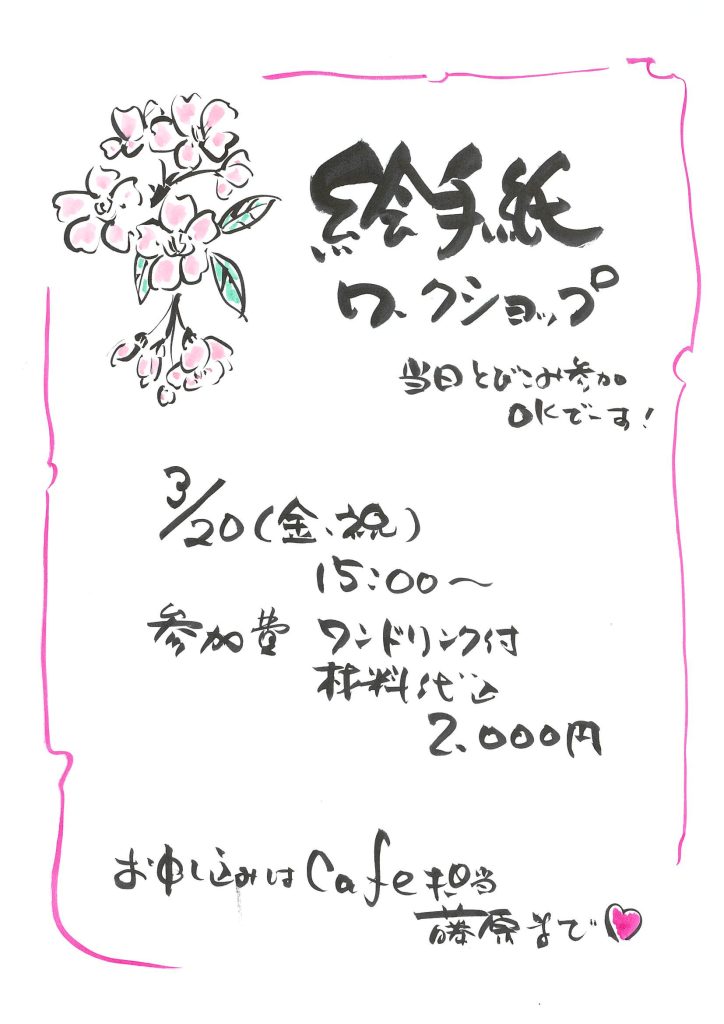 絵手紙
ワークショップ
当日とびこみ参加
OKでーす!
3/20(金、祝)
15:00〜
参加費 ワンドリンク付
材料代込
2.000円
お申し込みはCafe担当
藤原まで